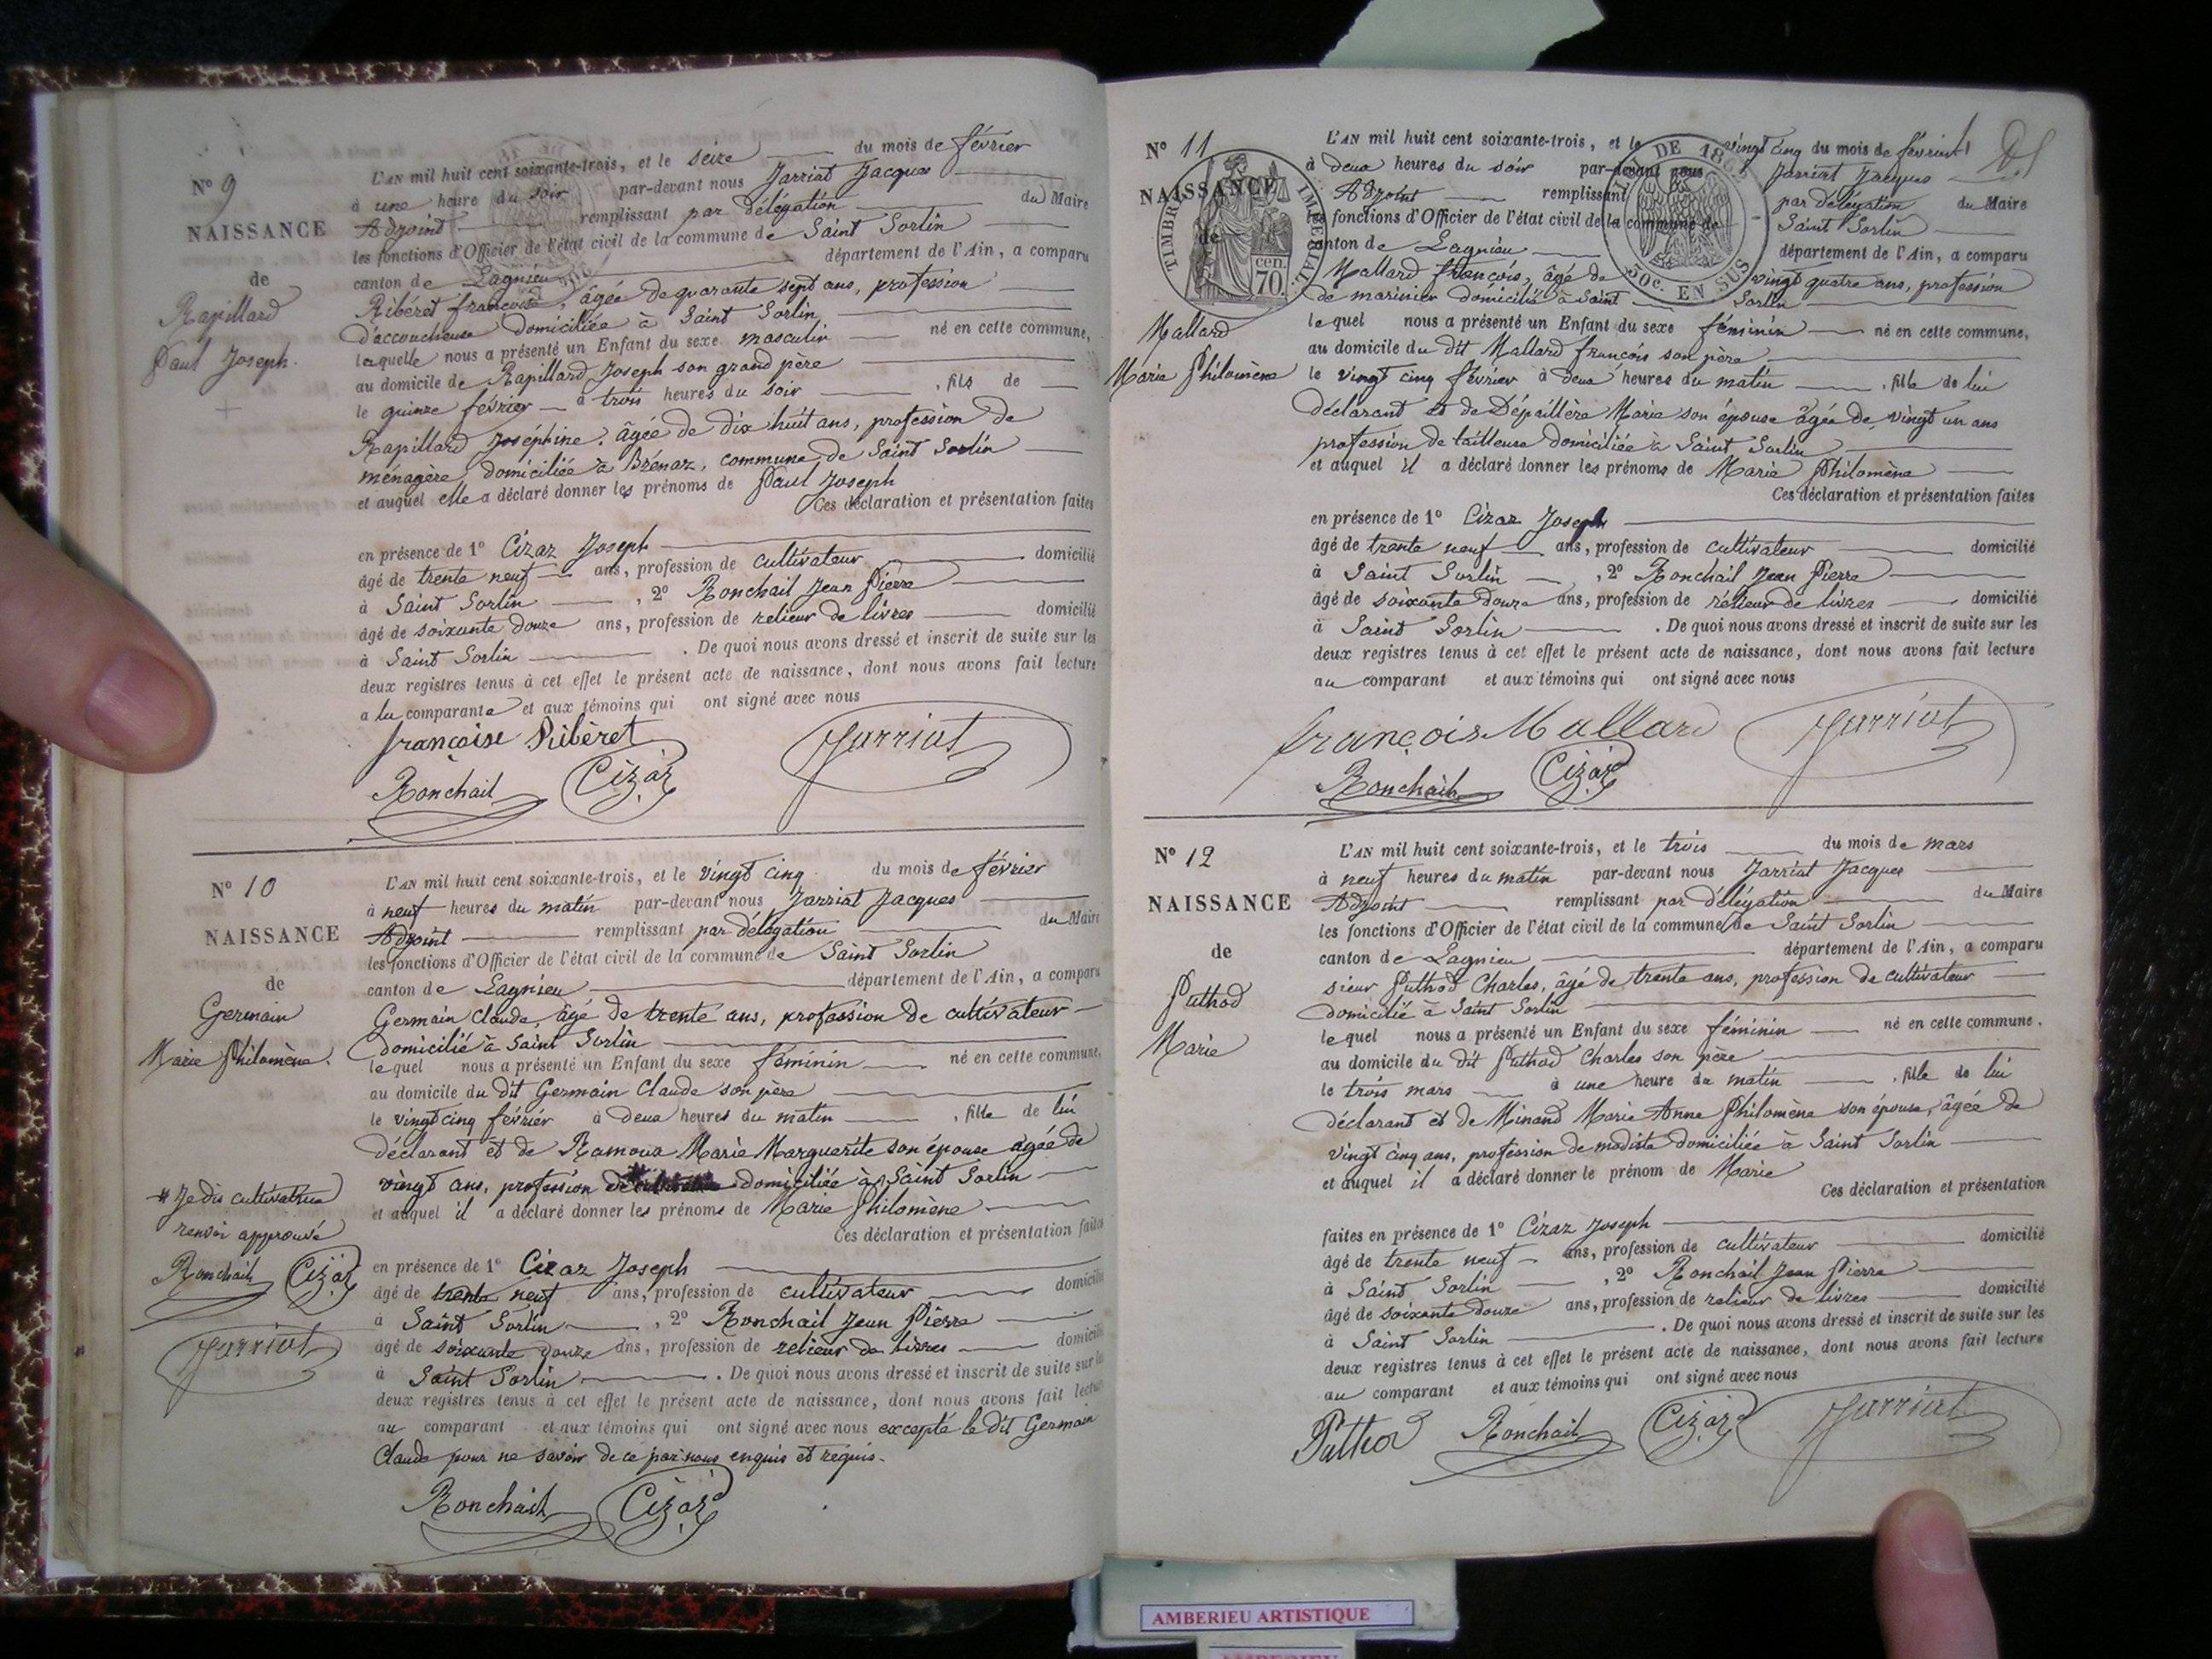 N° 9
NAISSANCE
de
Rapillard
Paul Joseph.
L'AN mil huit cent soixante-trois, et le seize du mois de février
à une heure du soir par-devant nous Jarriat Jacques
Adjoint remplissant par délégation du Maire
les fonctions d'Officier de l'état civil de la commune de Saint Sorlin
canton de Lagnieu département de l'Ain, a comparu
Ribéret françoise, âgée de quarante sept ans, profession
d'accoucheuse domiciliée à Saint Sorlin
laquelle nous a présenté un Enfant du sexe masculin né en cette commune,
au domicile de Rapillard Joseph son grand père
le quinze février à trois heures du soir , fils de
Rapillard Joséphine. âgée de dix huit ans, profession de
ménagère, domiciliée à Brénaz, commune de Saint Sorlin
et auquel elle a déclaré donner les prénoms de Paul Joseph
Ces déclaration et présentation faites
en présence de 1° Cizaz Joseph
âgé de trente neuf ans, profession de cultivateur domicilié
à Saint Sorlin , 2° Ronchail Jean Pierre
âgé de soixante douze ans, profession de relieur de livres domicilié
à Saint Sorlin . De quoi nous avons dressé et inscrit de suite sur les
deux registres tenus à cet effet le présent acte de naissance, dont nous avons fait lecture
a la comparante et aux témoins qui ont signé avec nous
françoise Ribèret Jarriat
Ronchail Cizaz
N° 10
NAISSANCE
de
Germain
Marie Philomène.
L'AN mil huit cent soixante-trois, et le vingt cinq du mois de février
à neuf heures du matin par-devant nous Jarriat Jacques
Adjoint remplissant par délégation du Maire
les fonctions d'Officier de l'état civil de la commune de Saint Sorlin
canton de Lagnieu département de l'Ain, a comparu
Germain Claude, âgé de trente ans, profession de cultivateur
domicilié à Saint Sorlin
le quel nous a présenté un Enfant du sexe féminin né en cette commune,
au domicile du dit Germain Claude son père
le vingt cinq février à deux heures du matin , fille de lui
déclarant et de Ramoux Marie Marguerite son épouse âgée de
vingt ans, profession domiciliée à Saint Sorlin
et auquel il a déclaré donner les prénoms de Marie Philomène
Ces déclaration et présentation faites
# Je dis cultivatrice
renvoi approuvé
Ronchail Cizaz
Jarriat
en présence de 1° Cizaz Joseph
âgé de trente neuf ans, profession de cultivateur domicilié
à Saint Sorlin , 2° Ronchail Jean Pierre
âgé de soixante douze ans, profession de relieur de livres domicilié
à Saint Sorlin . De quoi nous avons dressé et inscrit de suite sur les
deux registres tenus à cet effet le présent acte de naissance, dont nous avons fait lecture
au comparant et aux témoins qui ont signé avec nous excepté le dit Germain
Claude pour ne savoir de ce par nous enquis et réquis.
Ronchail Cizaz
N° 11
NAISSANCE
de
Mallard
Marie Philomène
TIMBRE IMPÉRIAL
70 cen.
DE 186
50c. EN SUS
L'AN mil huit cent soixante-trois, et le vingt cinq du mois de février
à deux heures du soir par-devant nous Jarriat Jacques
Adjoint remplissant par délégation du Maire
les fonctions d'Officier de l'état civil de la commune de Saint Sorlin
canton de Lagnieu département de l'Ain, a comparu
Mallard françois, âgé de vingt quatre ans, profession
de marinier domicilié à Saint Sorlin
le quel nous a présenté un Enfant du sexe féminin né en cette commune,
au domicile du dit Mallard françois son père
le vingt cinq février à deux heures du matin , fille de lui
déclarant et de Dépaillère Marie son épouse âgée de vingt un ans
profession de tailleuse domiciliée à Saint Sorlin
et auquel il a déclaré donner les prénoms de Marie Philomène
Ces déclaration et présentation faites
en présence de 1° Cizaz Joseph
âgé de trente neuf ans, profession de cultivateur domicilié
à Saint Sorlin , 2° Ronchail Jean Pierre
âgé de soixante douze ans, profession de relieur de livres domicilié
à Saint Sorlin . De quoi nous avons dressé et inscrit de suite sur les
deux registres tenus à cet effet le présent acte de naissance, dont nous avons fait lecture
au comparant et aux témoins qui ont signé avec nous
françois Mallard Jarriat
Ronchail Cizaz
N° 12
NAISSANCE
de
Puthod
Marie
L'AN mil huit cent soixante-trois, et le trois du mois de mars
à neuf heures du matin par-devant nous Jarriat Jacques
Adjoint remplissant par délégation du Maire
les fonctions d'Officier de l'état civil de la commune de Saint Sorlin
canton de Lagnieu département de l'Ain, a comparu
sieur Puthod Charles, âgé de trente ans, profession de cultivateur
domicilié à Saint Sorlin
le quel nous a présenté un Enfant du sexe féminin né en cette commune,
au domicile du dit Puthod Charles son père
le trois mars à une heure du matin , fille de lui
déclarant et de Minand Marie Anne Philomène son épouse, âgée de
vingt cinq ans, profession de modiste domiciliée à Saint Sorlin
et auquel il a déclaré donner le prénom de Marie
Ces déclaration et présentation
faites en présence de 1° Cizaz Joseph
âgé de trente neuf ans, profession de cultivateur domicilié
à Saint Sorlin , 2° Ronchail Jean Pierre
âgé de soixante douze ans, profession de relieur de livres domicilié
à Saint Sorlin . De quoi nous avons dressé et inscrit de suite sur les
deux registres tenus à cet effet le présent acte de naissance, dont nous avons fait lecture
au comparant et aux témoins qui ont signé avec nous
Puthod Ronchail Cizaz Jarriat
AMBERIEU ARTISTIQUE